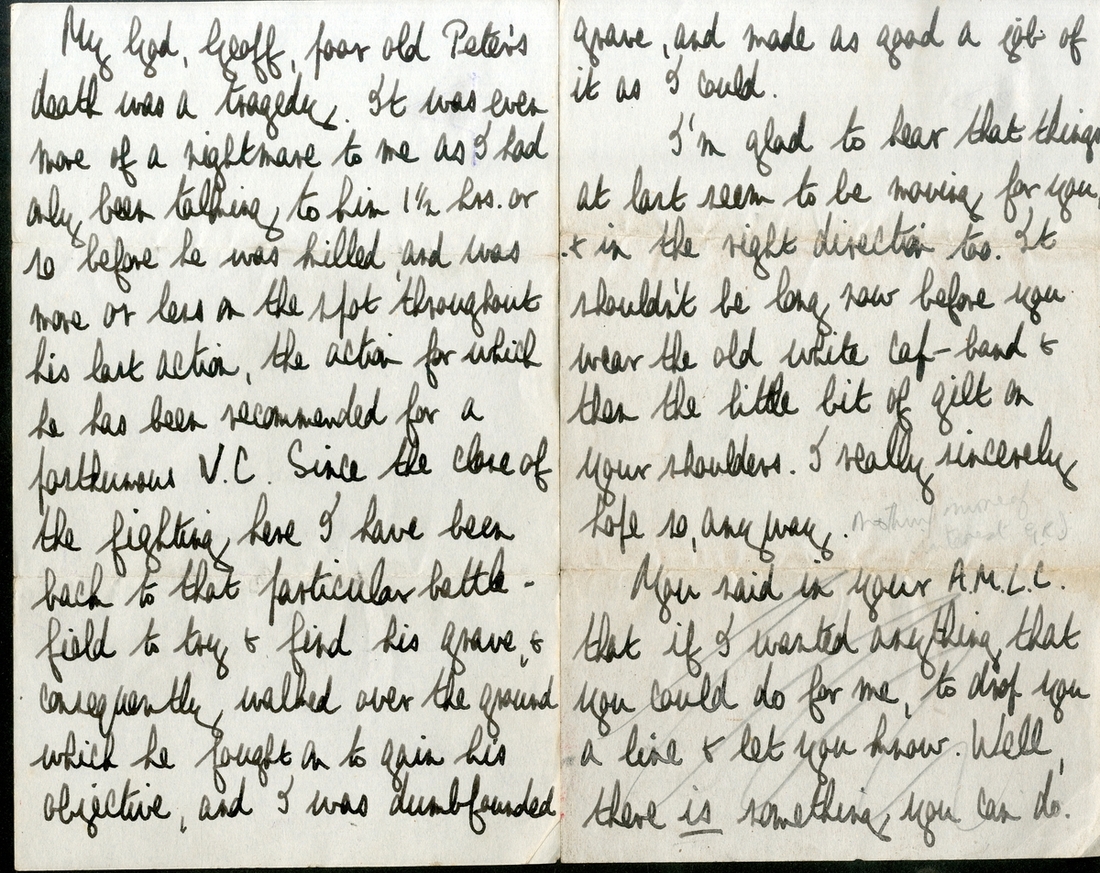 My God, Geoff, poor old Peter's
death was a tragedy. It was even
more of a nightmare to me as I had
only been talking to him 1½ hrs. or
so before he was killed, and was
more or less on the spot throughout
his last action, the action for which
he has been recommended for a
posthumous V.C. Since the close of
the fighting here I have been
back to that particular battle-
field to try & find his grave, &
consequently walked over the ground
which he fought on to gain his
objective, and I was dumbfounded
grave, and made as good a job of
it as I could.
I'm glad to hear that things
at last seem to be moving for you,
& in the right direction too. It
shouldn't be long now before you
wear the old white cap-band &
then the little bit of gilt on
your shoulders. I really sincerely
hope so, anyway.
Nothing more of
interest
You said in your A.M.L.C.
that if I wanted anything that
you could do for me, to drop you
a line & let you know. Well,
there is something you can do.